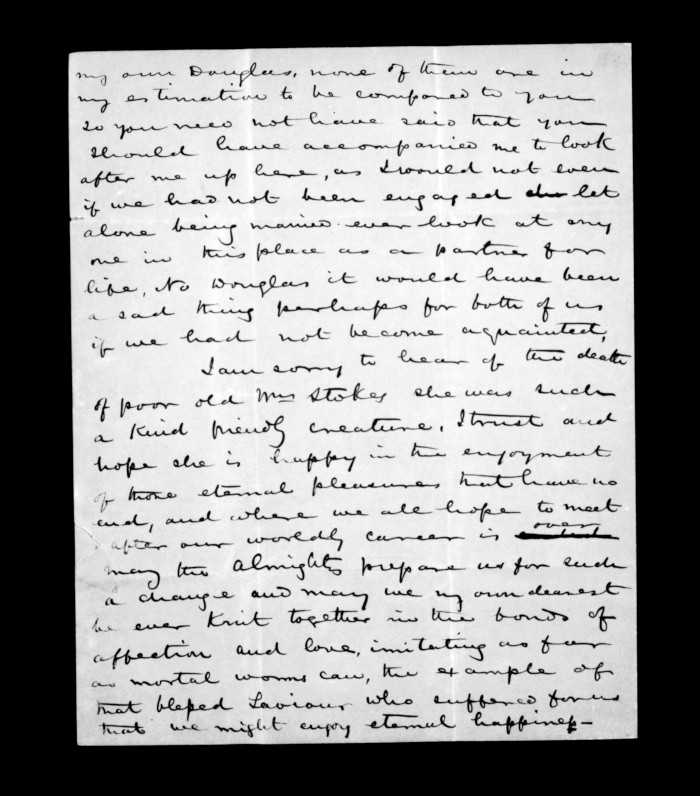 my own Douglas, none of them are in
my estimation to be compared to you
so you need not have said that you
should have accompanied me to look
after me up here, as I would not even
if we had not been engaged let
alone being married ever look at any
one in this place as a partner for
life, No Douglas it would have been
a sad thing perhaps for both of us
if we had not become aquainted,
I am sorry to hear of the death
of poor old Mrs Stokes she was such
a kind friendly creature, I trust and
hope she is happy in the enjoyment
of those eternal pleasures that have no
end, and where we all hope to meet
after our worldly career is over
may the Almighty prepare us for such
a change and may we my own dearest
be ever knit together in the bonds of
affection and love, imitating as far
as mortal worms can, the example of
that blessed Saviour who suffered for us
that we might enjoy eternal happiness—